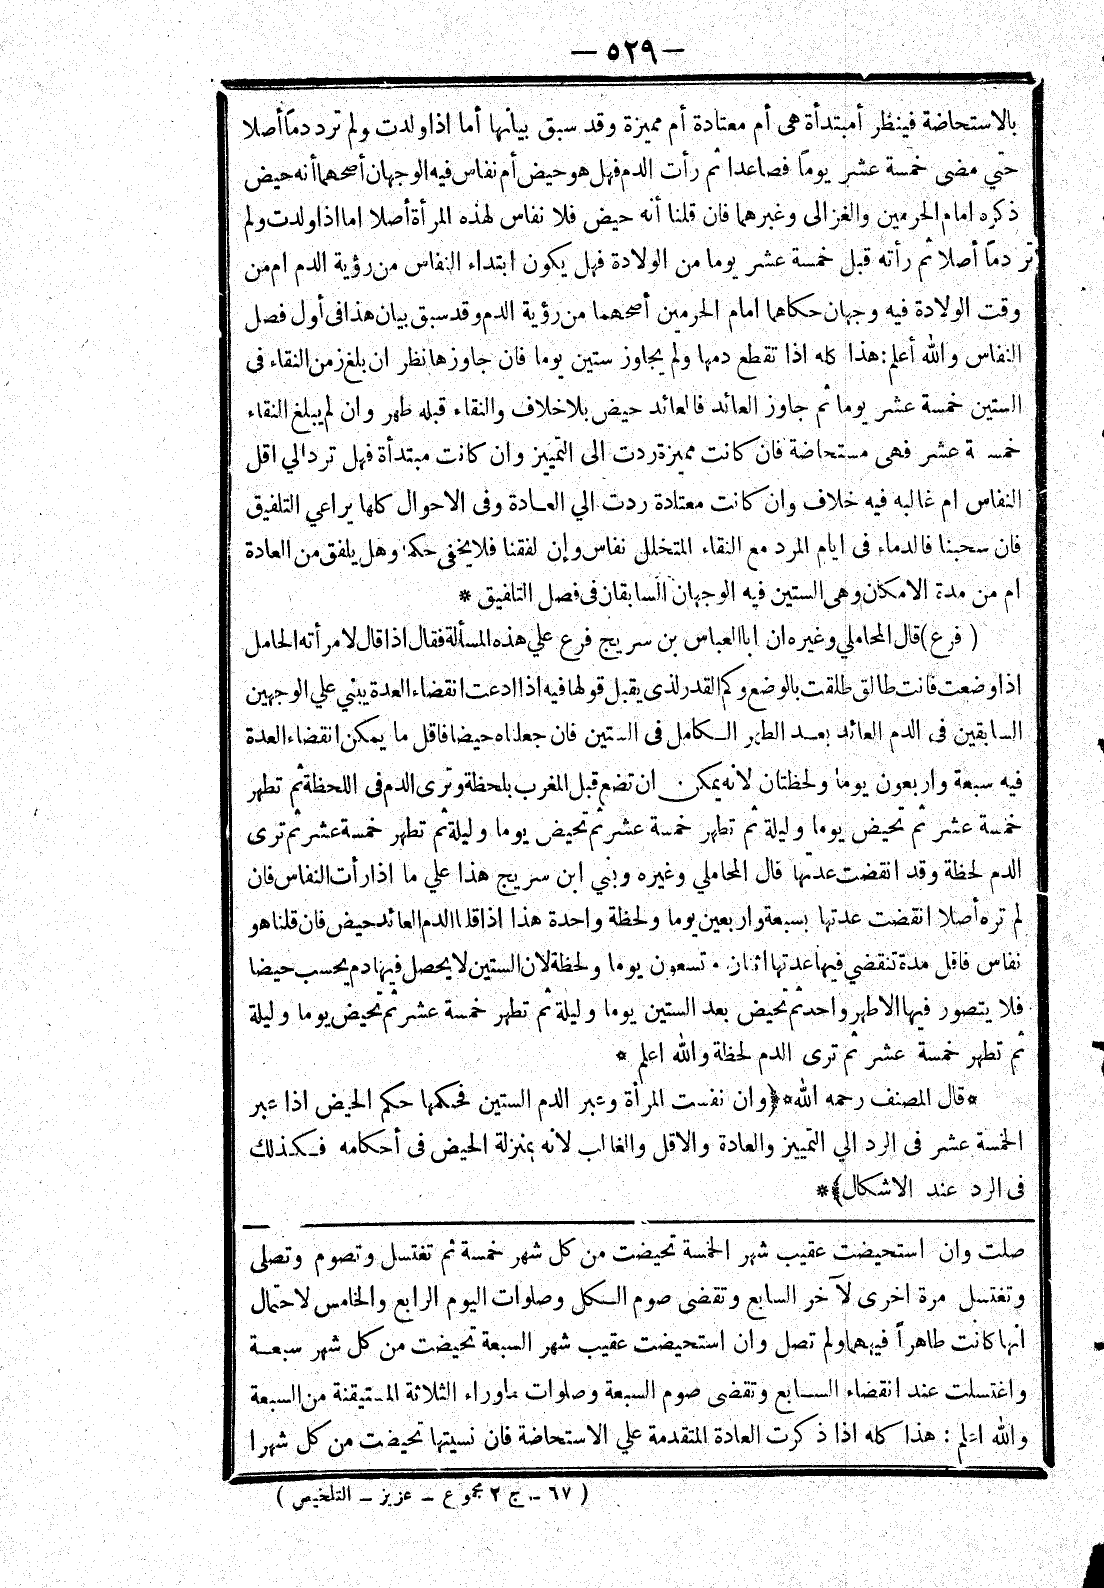 — ٥٢٩ —
بالاستحاضة فينظر أمبتدأة هى أم معتادة أم مميزة وقد سبق بيانها أما اذا ولدت ولم تر د دماً أصلا
حتي مضى خمسة عشر يوماً فصاعدا ثم رأت الدم فهل هو حيض أم نفاس فيه الوجهان أصحهما أنه حيض
ذكره امام الحرمين والغزالى وغيرهما فان قلنا أنه حيض فلا نفاس لهذه المرأة أصلا اما اذا ولدت ولم
تر دماً أصلا ثم رأته قبل خمسة عشر يوما من الولادة فهل يكون ابتداء النفاس من رؤية الدم ام من
وقت الولادة فيه وجهان حكاهما امام الحرمين أصحهما من رؤية الدم وقد سبق بيان هذا فى أول فصل
النفاس والله أعلم : هذا كله اذا تقطع دمها ولم يجاوز ستين يوما فان جاوزها نظر ان بلغ زمن النقاء فى
الستين خمسة عشر يوما ثم جاوز العائد فالعائد حيض بلا خلاف والنقاء قبله طهر وان لم يبلغ النقاء
خمسة عشر فهى مستحاضة فان كانت مميزة ردت الى التمييز وان كانت مبتدأة فهل ترد الي اقل
النفاس ام غالبه فيه خلاف وان كانت معتادة ردت الي العادة وفى الاحوال كلها يراعي التلفيق
فان سحبنا فالدماء فى ايام المرد مع النقاء المتخلل نفاس وإن لفقنا فلا يخفى حكمه وهل يلفق من العادة
ام من مدة الامكان وهى الستين فيه الوجهان السابقان فى فصل التلفيق *
( فرع ) قال المحاملي وغيره ان ابا العباس بن سريج فرع علي هذه المسألة فقال اذا قال لامرأته الحامل
اذا وضعت فانت طالق طلقت بالوضع وكم القدر لذى يقبل قولها فيه اذا ادعت انقضاء العدة يبني علي الوجهين
السابقين فى الدم العائد بعد الطهر الكامل فى الستين فان جعلناه حيضا فاقل ما يمكن انقضاء العدة
فيه سبعة واربعون يوما ولحظتان لانه يمكن ان تضع قبل المغرب بلحظة وترى الدم فى اللحظة ثم تطهر
خمسة عشر ثم تحيض يوما وليلة ثم تطهر خمسة عشر ثم تحيض يوما وليلة ثم تطهر خمسة عشر ثم ترى
الدم لحظة وقد انقضت عدتها قال المحاملي وغيره وبني ابن سريج هذا علي ما اذا رأت النفاس فان
لم تره أصلا انقضت عدتها بسبعة واربعين يوما ولحظة واحدة هذا اذا قلنا الدم العائد حيض فان قلنا هو
نفاس فاقل مدة تنقضي فيها عدتها اثنان وتسعون يوما ولحظة لان الستين لا يحصل فيها دم يحسب حيضا
فلا يتصور فيها الا طهر واحد ثم تحيض بعد الستين يوما وليلة ثم تطهر خمسة عشر ثم تحيض يوما وليلة
ثم تطهر خمسة عشر ثم ترى الدم لحظة والله اعلم *
* قال المصنف رحمه الله * ﴿ وان نفست المرأة وعبر الدم الستين فحكمها حكم الحيض اذا عبر
الخمسة عشر فى الرد الي التمييز والعادة والاقل والغالب لانه بمنزلة الحيض فى أحكامه فكذلك
فى الرد عند الاشكال ﴾ *
صلت وان استحيضت عقيب شهر الخمسة تحيضت من كل شهر خمسة ثم تغتسل وتصوم وتصلى
وتغتسل مرة اخرى لآخر السابع وتقضى صوم الكل وصلوات اليوم الرابع والخامس لاحتمال
انها كانت طاهراً فيهما ولم تصل وان استحيضت عقيب شهر السبعة تحيضت من كل شهر سبعة
واغتسلت عند انقضاء السابع وتقضى صوم السبعة وصلوات ماوراء الثلاثة المتيقنة من السبعة
والله اعلم : هذا كله اذا ذكرت العادة المتقدمة علي الاستحاضة فان نسيتها تحيضت من كل شهر ا
( ٦٧ – ج ٢ مجموع – عزيز – التلخيص )